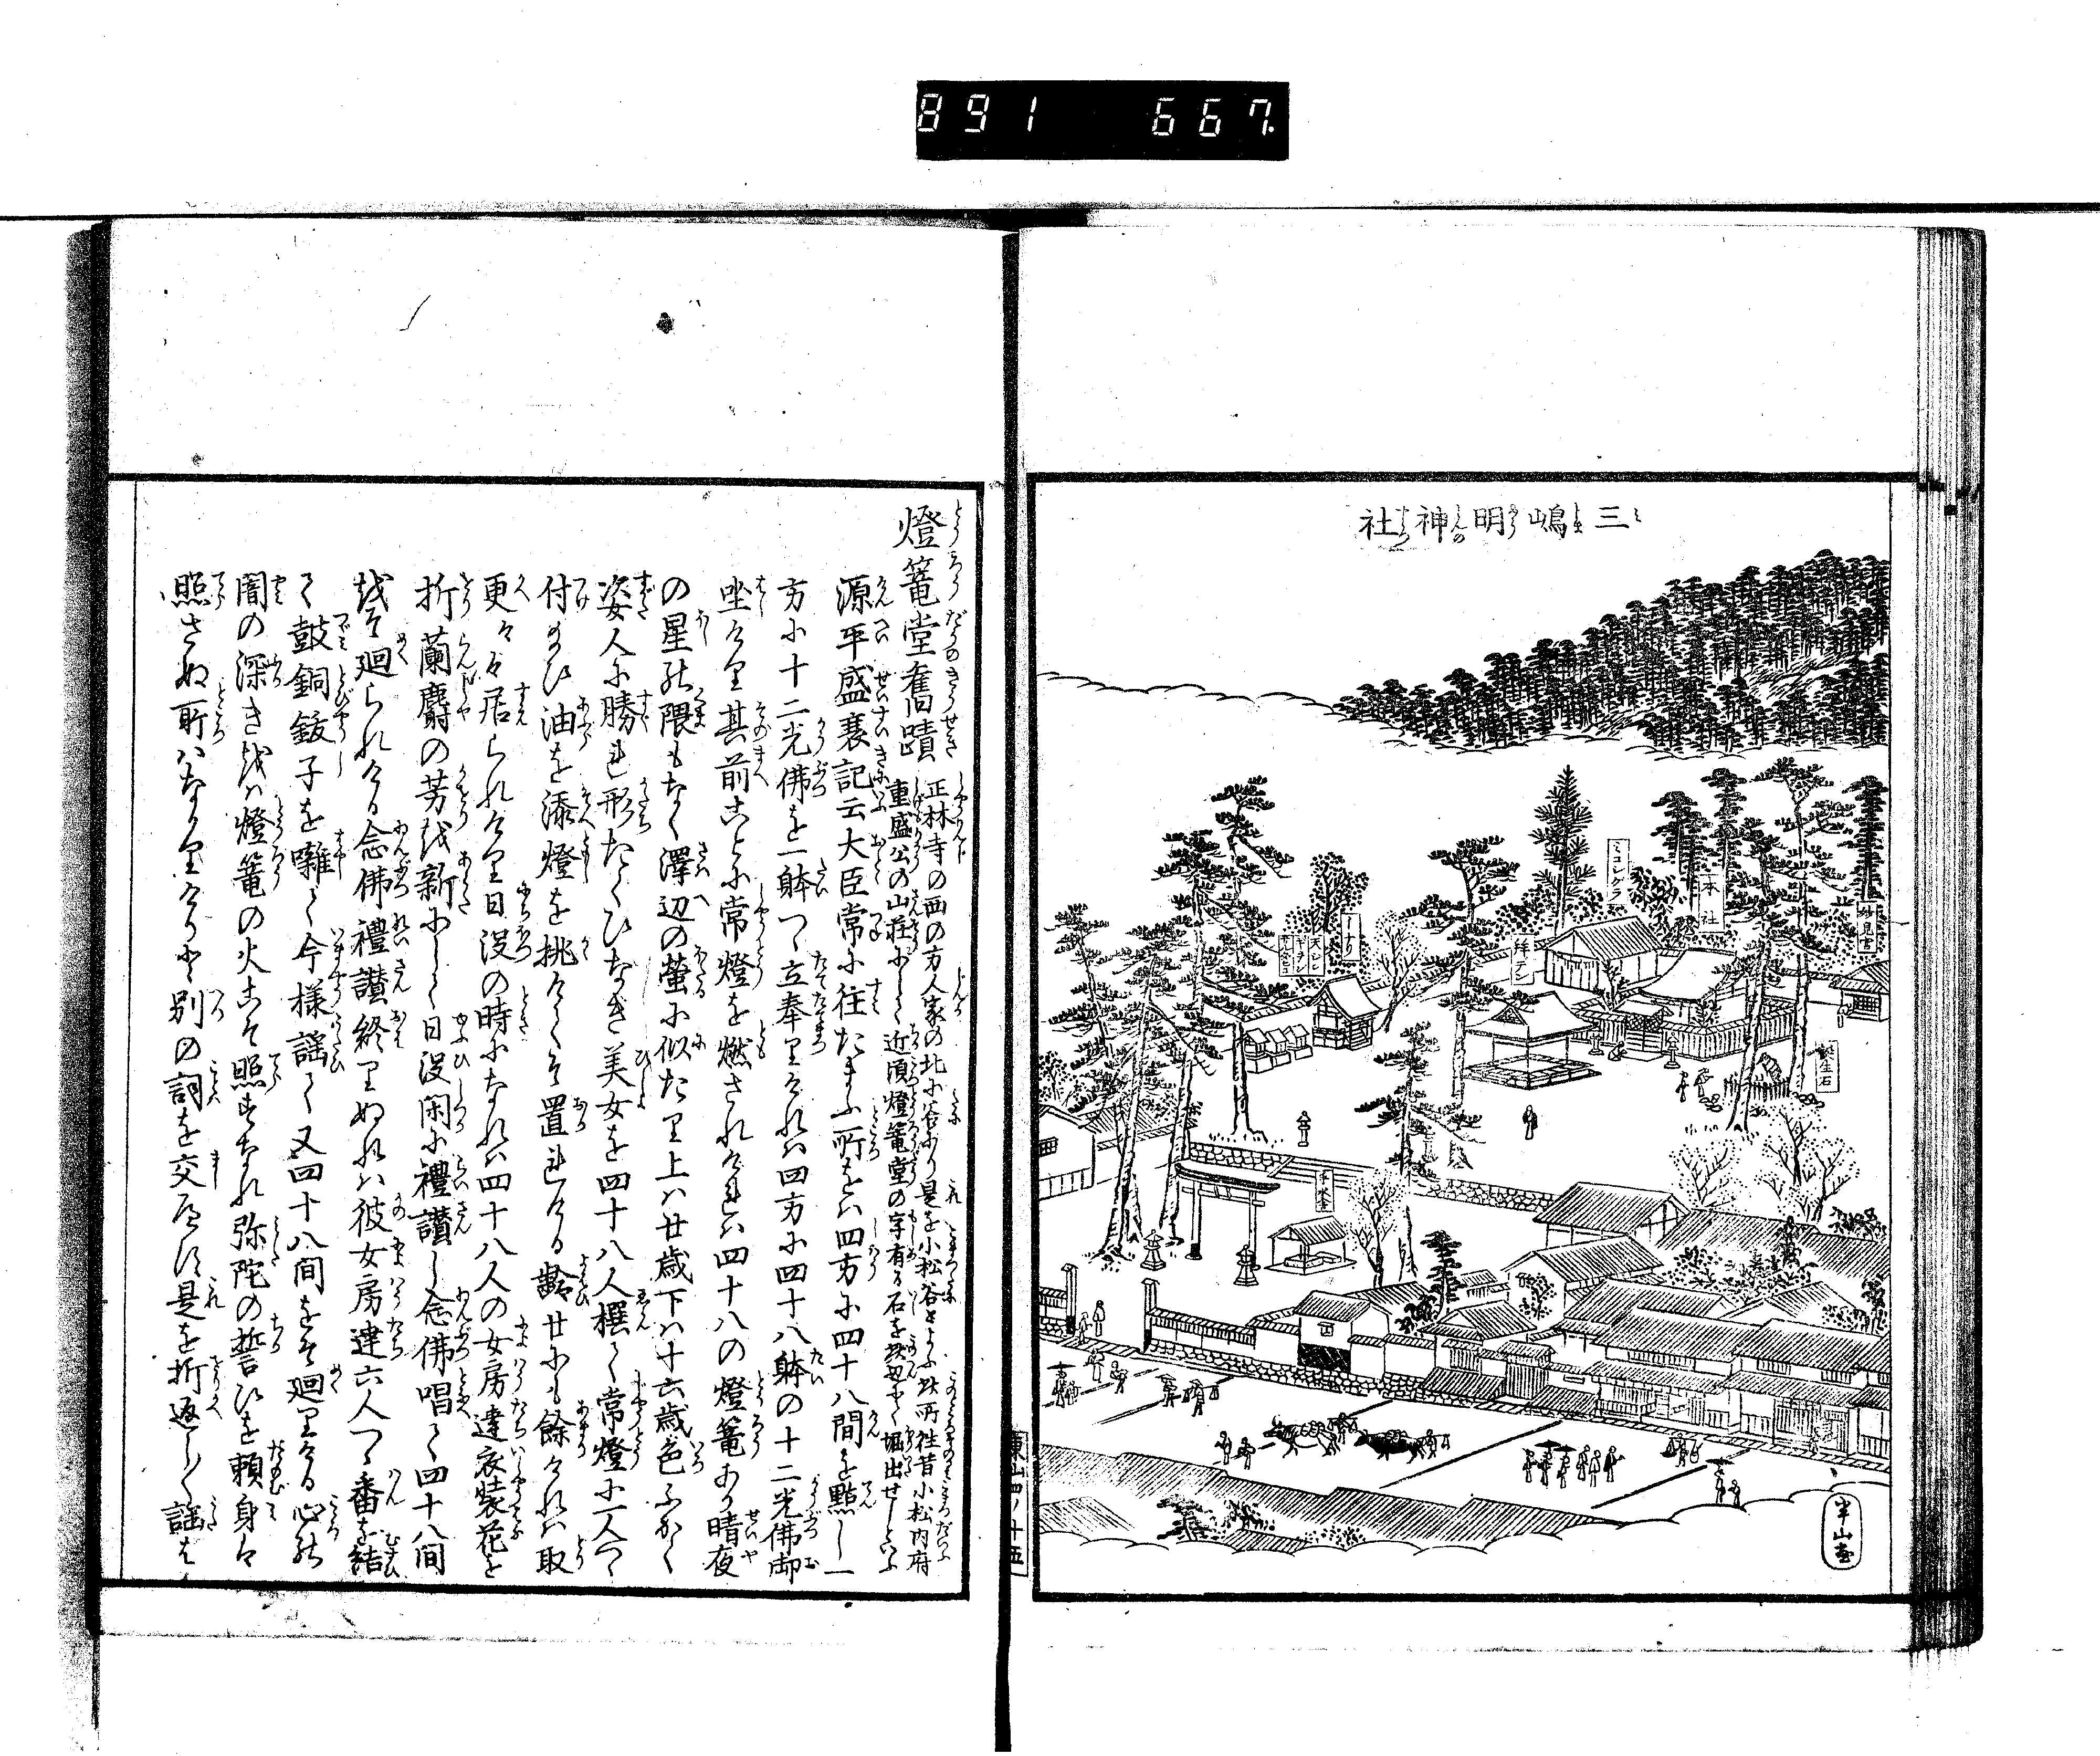 891 667
三嶋明神社
ミコシグラ
本社
妙見宮
拝デン
半山画
燈篭堂舊蹟
正林寺の西の方人家の北に谷あり是を小松谷といふ此所往昔小松内府
重盛公の山荘にして近頃燈篭堂の字有る石を
源平盛衰記云大臣常に住たまふ所をハ四方に四十八間を點し一
方に十二光佛を一躰つゝ立奉りけれハ四方に四十八躰の十二光佛御
坐けり其前ことに常燈を燃されけれハ四十八の燈篭あり晴夜
の星の隈もなく澤辺の蛍に似たり上ハ廿歳下ハ十六歳色ふかく
姿人に勝れ形たくひなき美女を四十八人撰て常燈に一人つゝ
付給ひ油を添燈を挑けてそ置れける齢廿にも餘けれハ取
更々々居られけり日没の時になれハ四十八人の女房達衣装花を
折蘭麝の芳を新にして日没閑に禮讃し念佛唱て四十八間
をそ廻られける念佛禮讃終りぬれハ彼女房達六人つゝ番を結
て鼓銅鈸子を囃て今様謡て又四十八間をそ廻りける心の
闇の深きをハ燈篭の火こそ照すなれ弥陀の誓ひを頼身ハ
照さぬ所ハなかりけりと別の詞を交へす是を折返して謡はし